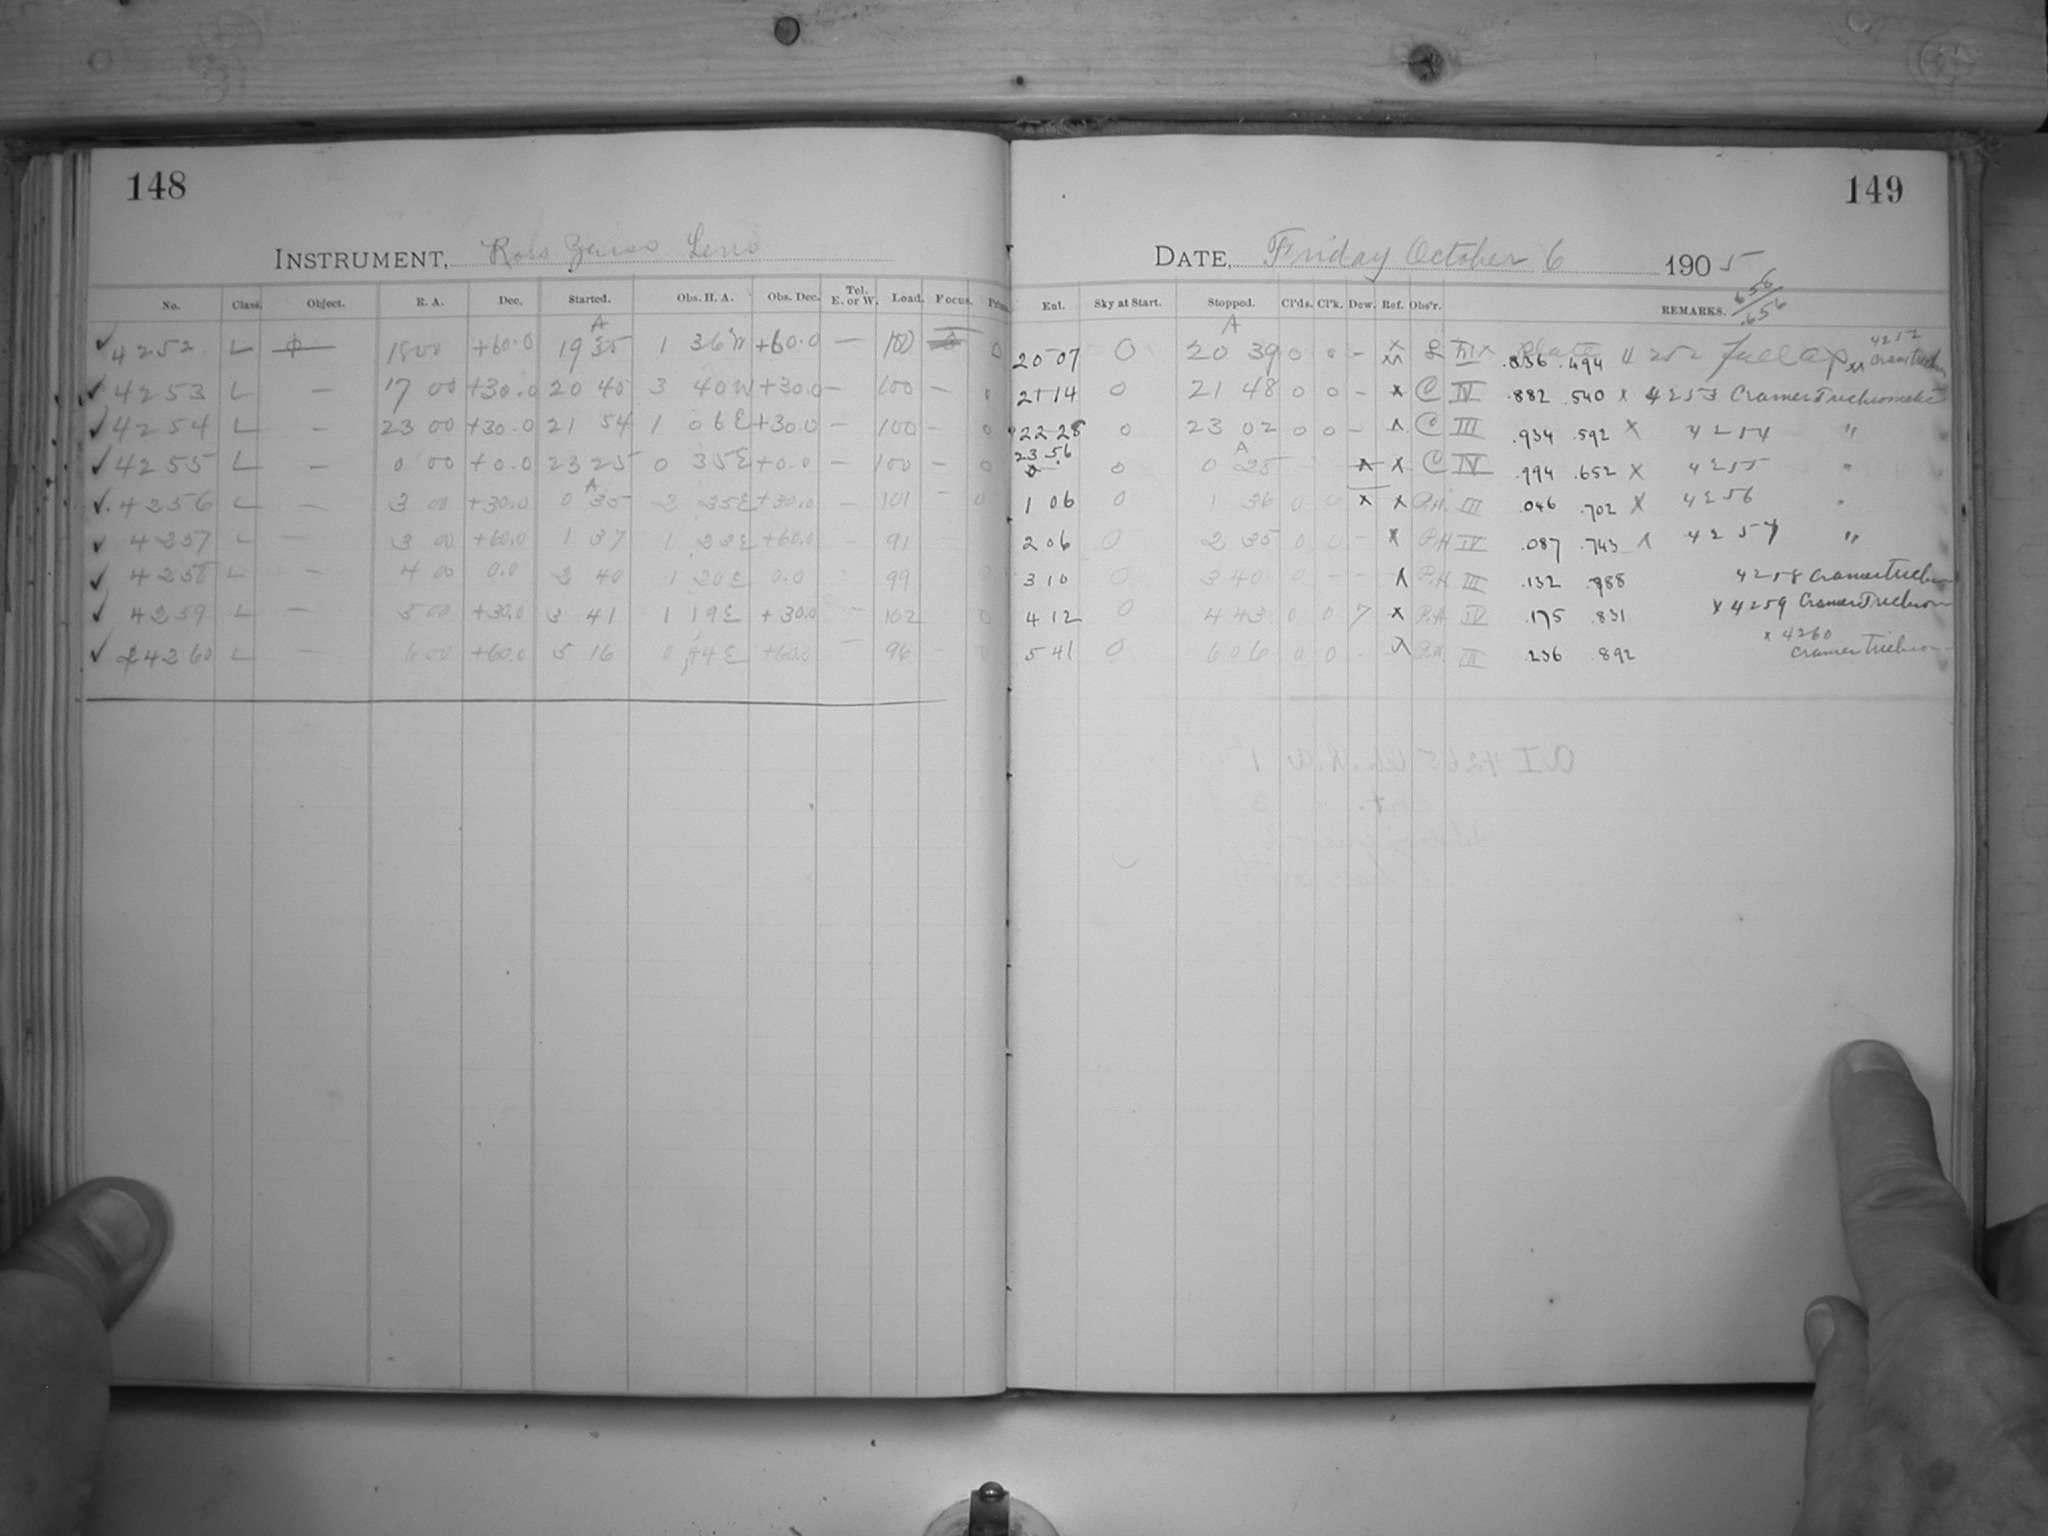 148
149
INSTRUMENT, Ross Zeiss Lens
DATE, Friday October 6 1905
.656
.656
No. Class. Object. R. A. Dec. Started. Obs. H. A. Obs. Dec. Tel. E. or W. Load. Focus.
Ent. Sky at Start. Stopped. Cl'ds. Cl'k. Dew. Ref. Obs'r. REMARKS.
✓ 4252 L — 18 00 +60.0 A 19 35 1 36 W +60.0 — 100 0 20 07 0 A 20 39 0 0 — .836 .494 4252
✓ 4253 L — 17 00 +30.0 20 40 3 40 W +30.0 — 100 — 0 21 14 0 21 48 0 0 — x C IV .882 .540 x 4253 Cramer Trichromatic
✓ 4254 L — 23 00 +30.0 21 54 1 06 E +30.0 — 100 — 0 22 28 0 23 02 0 0 — x C III .934 .592 x 4254 "
✓ 4255 L — 0 00 +0.0 23 25 0 35 E +0.0 — 100 — 0 23 56 0 A 0 25 — — x C IV .994 .652 x 4255 "
✓ 4256 L — 3 00 +30.0 A 0 35 2 35 E +30.0 — 101 — 0 1 06 0 1 36 0 0 x x P.H. III .046 .702 x 4256 "
✓ 4257 L — 3 00 +60.0 1 37 1 23 E +60.0 91 2 06 0 2 35 0 0 — x P.H IV .087 .743 x 4257 "
✓ 4258 L — 4 00 0.0 2 40 1 20 E 0.0 99 3 10 0 3 40 0 — — x P.H. III .132 4258 Cramer
✓ 4259 L — 5 00 +30.0 3 41 1 19 E +30.0 — 102 0 4 12 0 4 43 0 0 x P.H IV .175 .831 x 4259 Cramer
✓ 4260 L — 6 00 +60.0 5 16 0 44 E +60.0 — 96 5 41 0 6 06 0 0 — x P.H. III .236 .892 x 4260
Cramer